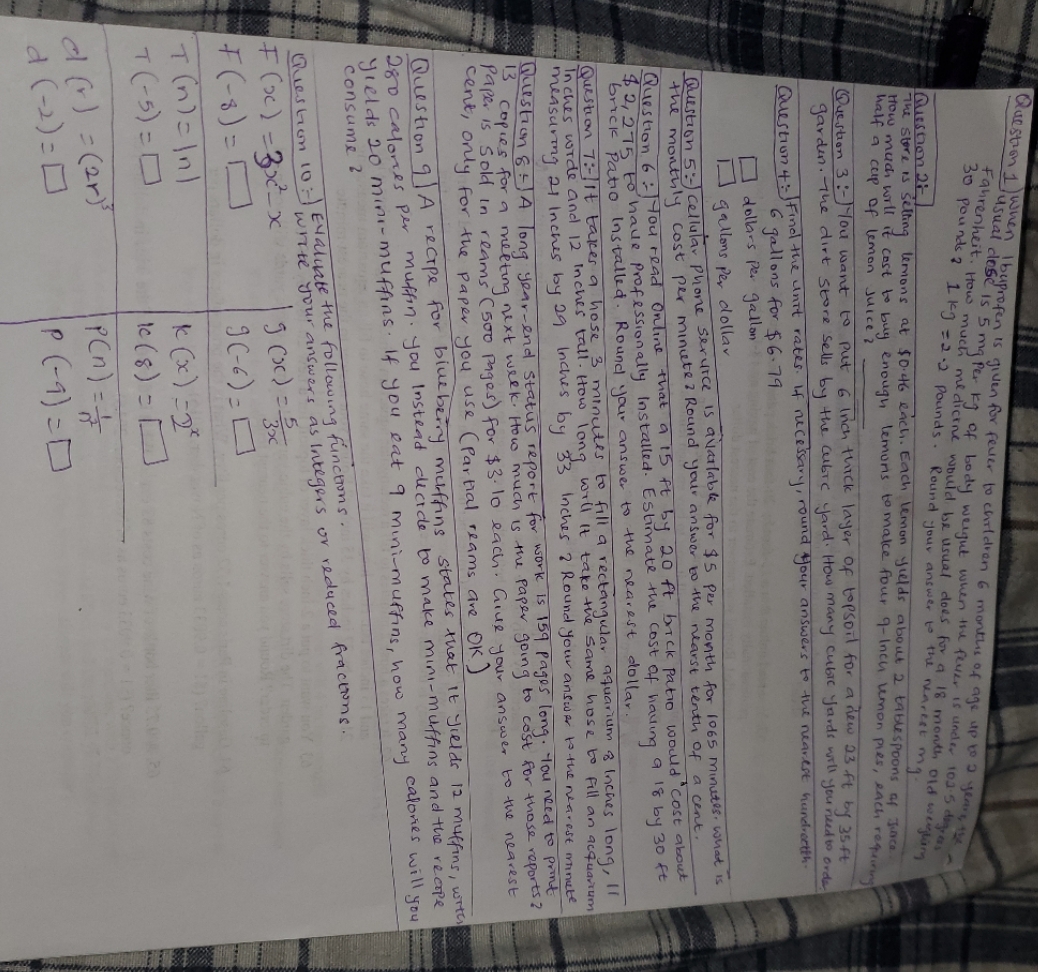 Question 1) When Ibuprofen is given for fever to children 6 months of age up to 2 years, the
usual dose is 5 mg per kg of body weight when the fever is under 102.5 degrees
Fahrenheit. How much medicine would be usual does for a 18 month old weighing
30 pounds? 1 kg = 2.2 pounds. Round your answer to the nearest mg.
Question 2:-
The store is selling lemons at $0.46 each. Each lemon yields about 2 tablespoons of juice.
How much will it cost to buy enough lemons to make four 9-inch lemon pies, each requiring
half a cup of lemon juice?
Question 3:-) You want to put 6 inch thick layer of topsoil for a new 23 ft by 35 ft
garden. The dirt store sells by the cubic yard. How many cubic yards will you need to order
Question 4:-) Find the unit rates. If necessary, round your answers to the nearest hundredth.
6 gallons for $6.79
□ dollars per gallon
□ gallons per dollar
Question 5:-) cellular phone service is available for $5 per month for 1065 minutes. What is
the monthly cost per minute? Round your answer to the nearst tenth of a cent.
Question 6:-) You read online that a 15 ft by 20 ft brick patio would cost about
$2,275 to have professionally installed. Estimate the cost of having a 18 by 30 ft
brick patio installed. Round your answer to the nearest dollar.
Question 7:-) It takes a hose 3 minutes to fill a rectangular aquarium 8 inches long, 11
inches wide and 12 inches tall. How long will it take the same hose to fill an acquarium
measuring 21 inches by 29 inches by 33 inches? Round your answer to the nearest minute
Question 8:-) A long year-end status report for work is 159 pages long. You need to print
13 copies for a meeting next week. How much is the paper going to cost for those reports?
Paper is sold in reams (500 pages) for $3.10 each. Give your answer to the nearest
cent, only for the paper you use (Partial reams are OK)
Question 9) A recipe for blueberry muffins states that it yields 12 muffins, with
280 calories per muffin. You instead decide to make mini-muffins and the recipe
yields 20 mini-muffins. If you eat 9 mini-muffins, how many calories will you
consume?
Question 10:-) Evaluate the following functions.
write your answers as integers or reduced fractions.
F(x) = 3x² - x
g(x) = 5/3x
F(-8) = □
g(-6) = □
T(n) = |n|
k(x) = 2ˣ
T(-5) = □
k(8) = □
d(r) = (2r)³
P(n) = 1/n
d(-2) = □
P(-9) = □